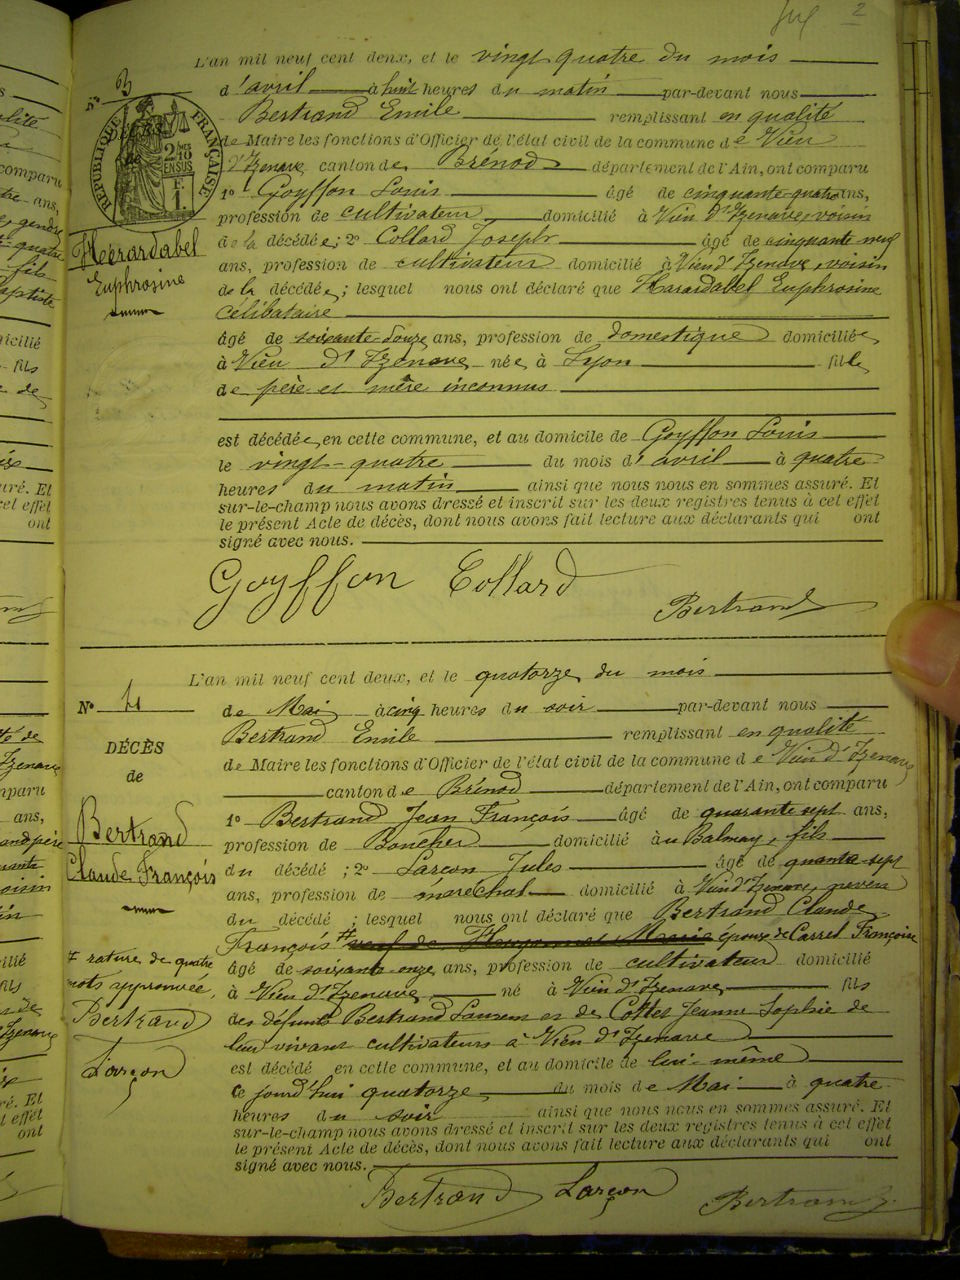 2
L'an mil neuf cent deux, et le vingt quatre du mois
N° 3
d'avril à huit heures du matin par-devant nous
Bertrand Emile remplissant en qualité
RÉPUBLIQUE FRANÇAISE
2/10MES
EN SUS
F.
1.
de Maire les fonctions d'Officier de l'état civil de la commune de Vieu
d'Izenave, canton de Brénod département de l'Ain, ont comparu
1° Goyffon Louis âgé de cinquante-quatre ans,
profession de cultivateur domicilié à Vieu d'Izenave, voisin
Héérardabel
Euphrosine
de la décédée; 2° Collard Joseph âgé de cinquante neuf
ans, profession de cultivateur domicilié à Vieu d'Izenave, voisin
de la décédée; lesquel nous ont déclaré que Harardabel Euphrosine
célibataire
âgé de soixante-douze ans, profession de domestique domiciliée
à Vieu d'Izenave née à Lyon fille
de père et mère inconnus
est décédée, en cette commune, et au domicile de Goyffon Louis
le vingt-quatre du mois d'avril à quatre
heures du matin ainsi que nous nous en sommes assuré. Et
sur-le-champ nous avons dressé et inscrit sur les deux registres tenus à cet effet
le présent Acte de décès, dont nous avons fait lecture aux déclarants qui ont
signé avec nous.
Goyffon Collard
Bertrand
L'an mil neuf cent deux, et le quatorze du mois
N° 4
de Mai à cinq heures du soir par-devant nous
Bertrand Emile remplissant en qualité
DÉCÈS
de
Bertrand
Claude François
de Maire les fonctions d'Officier de l'état civil de la commune de Vieu d'Izenave
canton de Brénod département de l'Ain, ont comparu
1° Bertrand Jean François âgé de quarante sept ans,
profession de Boucher domicilié au Balmay, fils
du décédé; 2° Larçon Jules âgé de quarante-sept
ans, profession de maréchal domicilié à Vieu d'Izenave, neveu
du décédé; lesquel nous ont déclaré que Bertrand Claude
François # veuf de Marie époux de Carrel Françoise
≠ rature de quatre
mots approuvée,
Bertrand
Larçon
âgé de soixante-onze ans, profession de cultivateur domicilié
à Vieu d'Izenave né à Vieu d'Izenave fils
des défunts Bertrand Laurent et de Cottet Jeanne Sophie de
leur vivant cultivateurs à Vieu d'Izenave
est décédé en cette commune, et au domicile de lui-même
ce jourd'hui quatorze du mois de Mai à quatre
heures du soir ainsi que nous nous en sommes assuré. Et
sur-le-champ nous avons dressé et inscrit sur les deux registres tenus à cet effet
le présent Acte de décès, dont nous avons fait lecture aux déclarants qui ont
signé avec nous.
Bertrand Larçon
Bertrand